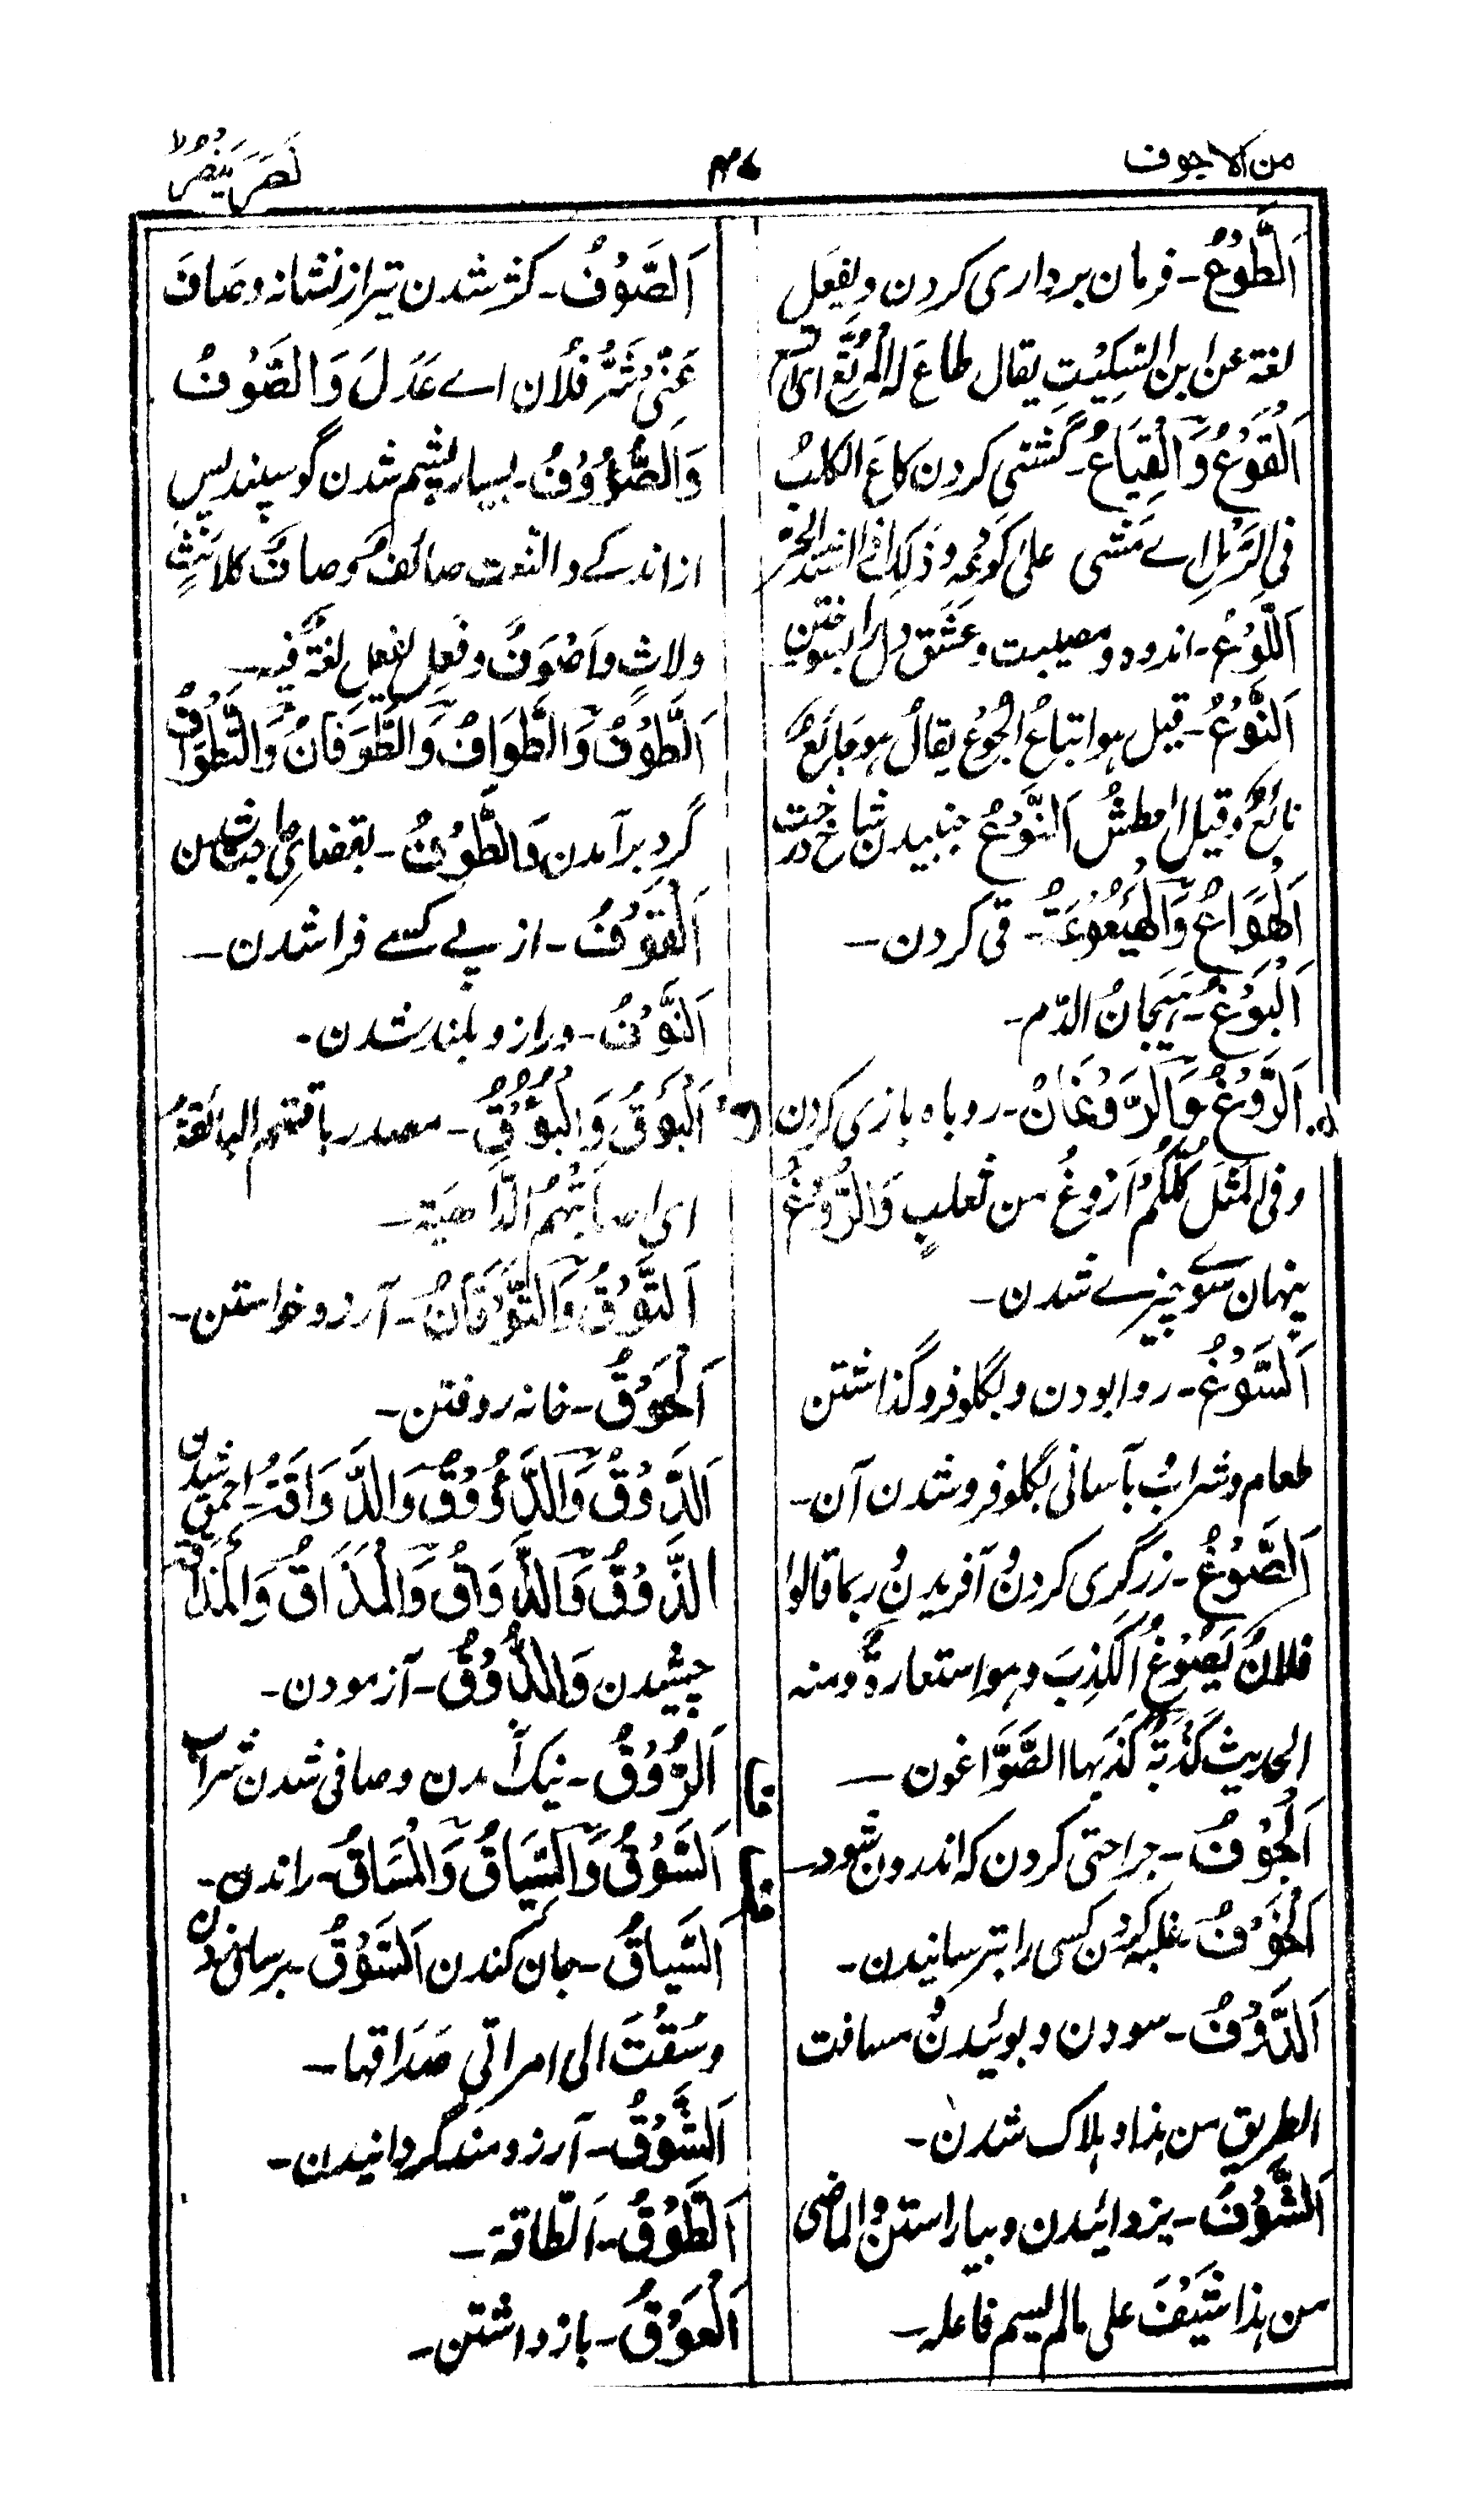 من الاجوف
نَصَرَ يَنْصُرُ
اَلطَّوْعُ۔ فرمان برداری کردن ویفعَل
لغة عن ابن السِّکِّیْتِ یقال طاعَ له المَرْتَعُ ای اتسع
اَلْقَوْعُ وَالْقِیَاعُ۔ گشنی کردن کاعَ الکلبُ
فی الرَّمْلِ اے مَشٰی علیٰ کُوْعِهٖ وذٰلِكَ اذا اشتد الحَرُّ
اَللَّوْعُ۔ اندوه ومصیبت وعشق دل را بسوختن
اَلنُّوْعُ۔ قیل هو اتباعُ الجُوْعِ یقالُ هو جَائِعٌ
نائعٌ وقیل العطشُ اَلنَّوْعُ جنبیدن شاخ درخت
اَلْهُوَاعُ وَالْهَیْعُوْعَةُ۔ قی کردن۔
اَلْبَوْغُ۔ هَیَجَانُ الدّم۔
اَلرَّوْغُ وَالرَّوَغَانُ۔ روباه بازی کردن
وفی المثل کُلُّکُمْ اَرْوَغُ من ثعلبٍ وَالرَّوْغُ
پنهان سوے چیزے شدن۔
اَلسَّوْغُ۔ روا بودن وبگلو فرو گذاشتن
طعام وشراب بآسانی بگلو فرو شدن آن۔
اَلصَّوْغُ۔ زرگری کردن وآفریدن ربما قالوا
فلانٌ یَصُوْغُ الْکَذِبَ وهو استعارةٌ ومنه
الحدیث کَذْبَةٌ کَذَبَها الصَّوَّاغون۔
اَلْجَوْفُ۔ جراحتی کردن که اندرون شود۔
اَلْخَوْفُ۔ غلبه کردن کسی را بترسانیدن۔
اَلدَّوْفُ۔ سودن وبوئیدن مسافت
الطریق من هذا وهلاک شدن۔
اَلشَّوْفُ۔ بزدائیدن وبیاراستن والماضی
من هذا شِیْفَ علی مالم یسم فاعله۔
اَلصَّوْفُ۔ کژ شدن تیر از نشانه وصَافَ
عَنِّیْ شَرُّ فُلَان اے عَدَلَ وَالصَّوْفُ
وَالصُّؤُوْفُ۔ بسیار پشم شدن گوسپند پس
از اندکے والنعت صائفٌ وصافٌ کلائثٍ
ولاثٍ واَصْوَفُ وفَعِلَ یفعل لغةٌ فیه۔
اَلطَّوْفُ وَالطَّوَافُ وَالطَّوَفَانُ وَالتَّطْوَافُ
گرد برآمدن وَالطَّوْفُ۔ بقضای حاجت شدن
اَلْقَوْفُ۔ از پے کسے فرا شدن۔
اَلنَّوْفُ۔ دراز وبلند شدن۔
ق اَلْبَوْقُ وَالْبُؤُوْقُ۔ مصدر باقتهم البائقةُ
ای اصابتْهُمُ الدَّاهیَة۔
اَلتَّوْقُ وَالتَّوَقَانُ۔ آرزو خواستن۔
اَلْحَوْقُ۔ خانه روفتن۔
اَلدَّوْقُ وَالدُّؤُوْقُ وَالدَّوَاقَةُ احمق شدن
الذَّوْقُ وَالذَّوَاقُ وَالْمَذَاقُ وَالْمَذَاقَةُ
چشیدن وَالذَّوْقُ۔ آزمودن۔
اَلرَّوْقُ۔ نیک آمدن وصافی شدن شراب
اَلسَّوْقُ وَالسِّیَاقُ وَالْمَسَاقُ۔ راندن۔
اَلسِّیاقُ۔ جان کندن اَلسَّوْقُ۔ بر ساق زدن
وسُقْتُ الی امراتی صَدَاقها۔
اَلشَّوْقُ۔ آرزومند گردانیدن۔
اَلطَّوْقُ۔ اَلطَّاقة۔
اَلْعَوْقُ۔ باز داشتن۔